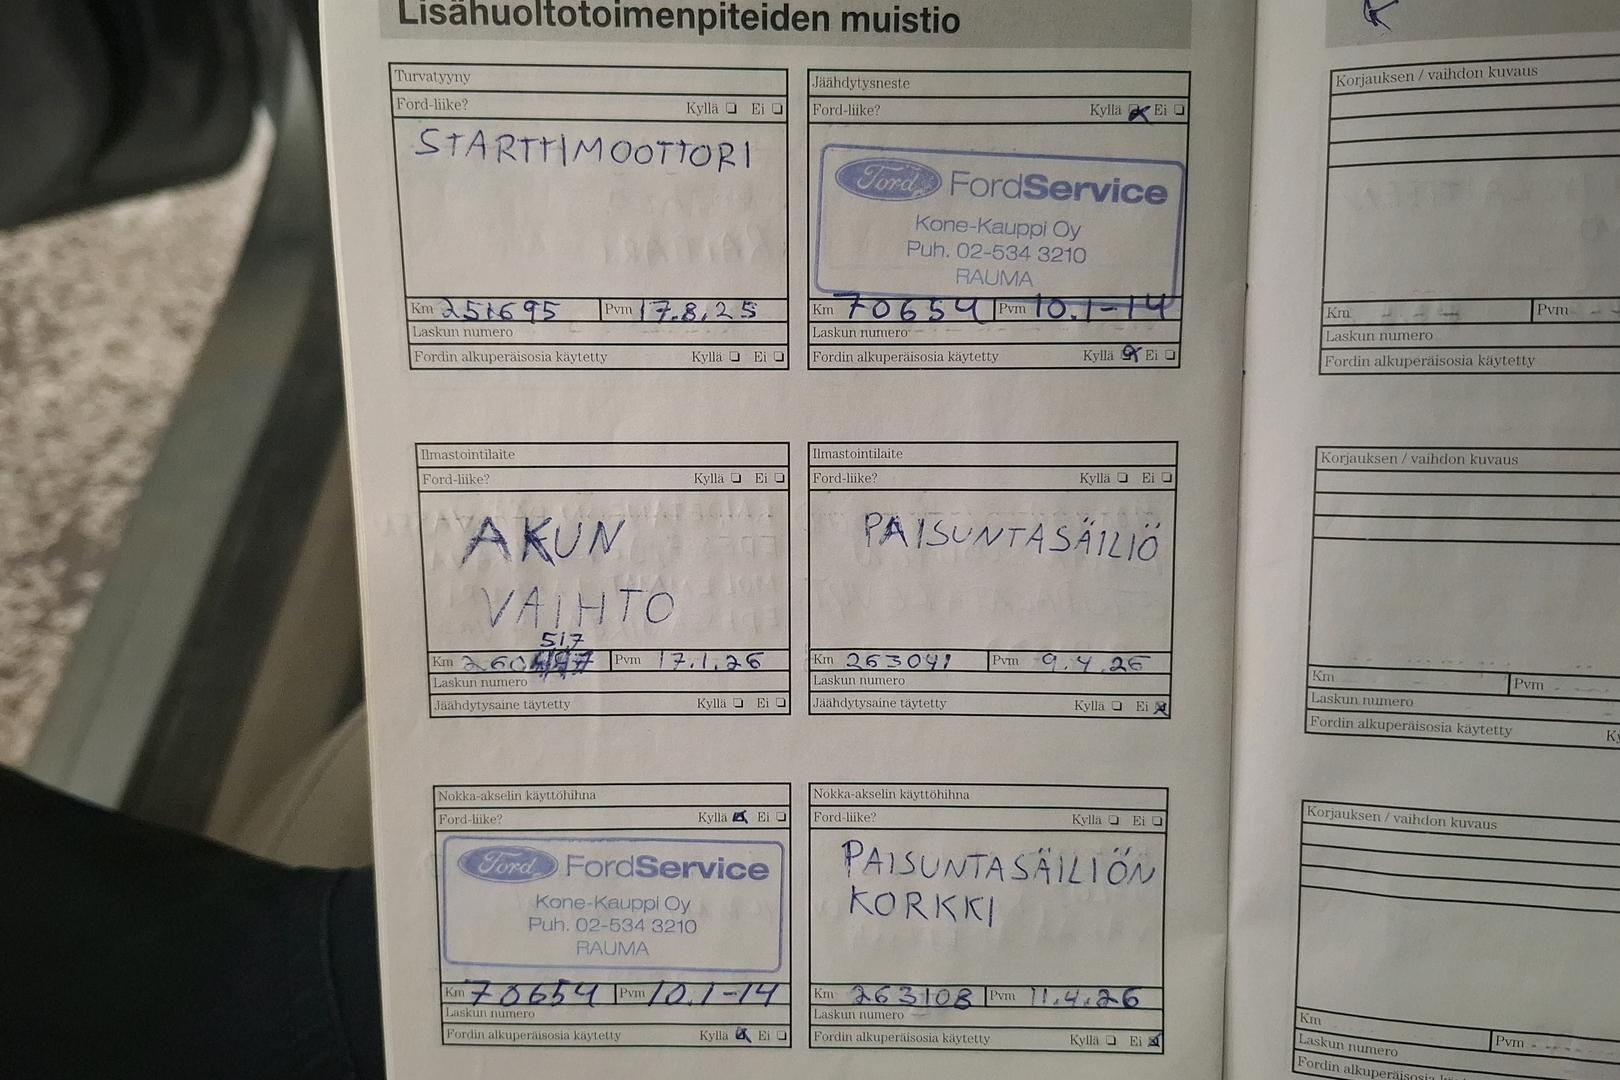 Lisähuoltotoimenpiteiden muistio
Turvatyyny
Ford-liike? Kyllä ❏ Ei ❏
STARTTIMOOTTORI
Km 251695 Pvm 17.8.25
Laskun numero
Fordin alkuperäisosia käytetty Kyllä ❏ Ei ❏
Jäähdytysneste
Ford-liike? Kyllä ☒ Ei ❏
Ford FordService
Kone-Kauppi Oy
Puh. 02-534 3210
RAUMA
Km 70654 Pvm 10.1-14
Laskun numero
Fordin alkuperäisosia käytetty Kyllä ☒ Ei ❏
Ilmastointilaite
Ford-liike? Kyllä ❏ Ei ❏
AKUN
VAIHTO
517
Km 260 Pvm 17.1.26
Laskun numero
Jäähdytysaine täytetty Kyllä ❏ Ei ❏
Ilmastointilaite
Ford-liike? Kyllä ❏ Ei ❏
PAISUNTASÄILIÖ
Km 263041 Pvm 9.4.26
Laskun numero
Jäähdytysaine täytetty Kyllä ❏ Ei ☒
Nokka-akselin käyttöhihna
Ford-liike? Kyllä ☒ Ei ❏
Ford FordService
Kone-Kauppi Oy
Puh. 02-534 3210
RAUMA
Km 70654 Pvm 10.1-14
Laskun numero
Fordin alkuperäisosia käytetty Kyllä ☒ Ei ❏
Nokka-akselin käyttöhihna
Ford-liike? Kyllä ❏ Ei ❏
PAISUNTASÄILIÖN
KORKKI
Km 263108 Pvm 11.4.26
Laskun numero
Fordin alkuperäisosia käytetty Kyllä ❏ Ei ☒
Korjauksen / vaihdon kuvaus
Km Pvm
Laskun numero
Fordin alkuperäisosia käytetty
Korjauksen / vaihdon kuvaus
Km Pvm
Laskun numero
Fordin alkuperäisosia käytetty Ky
Korjauksen / vaihdon kuvaus
Km Pvm
Laskun numero
Fordin alkuperäisosia käytetty